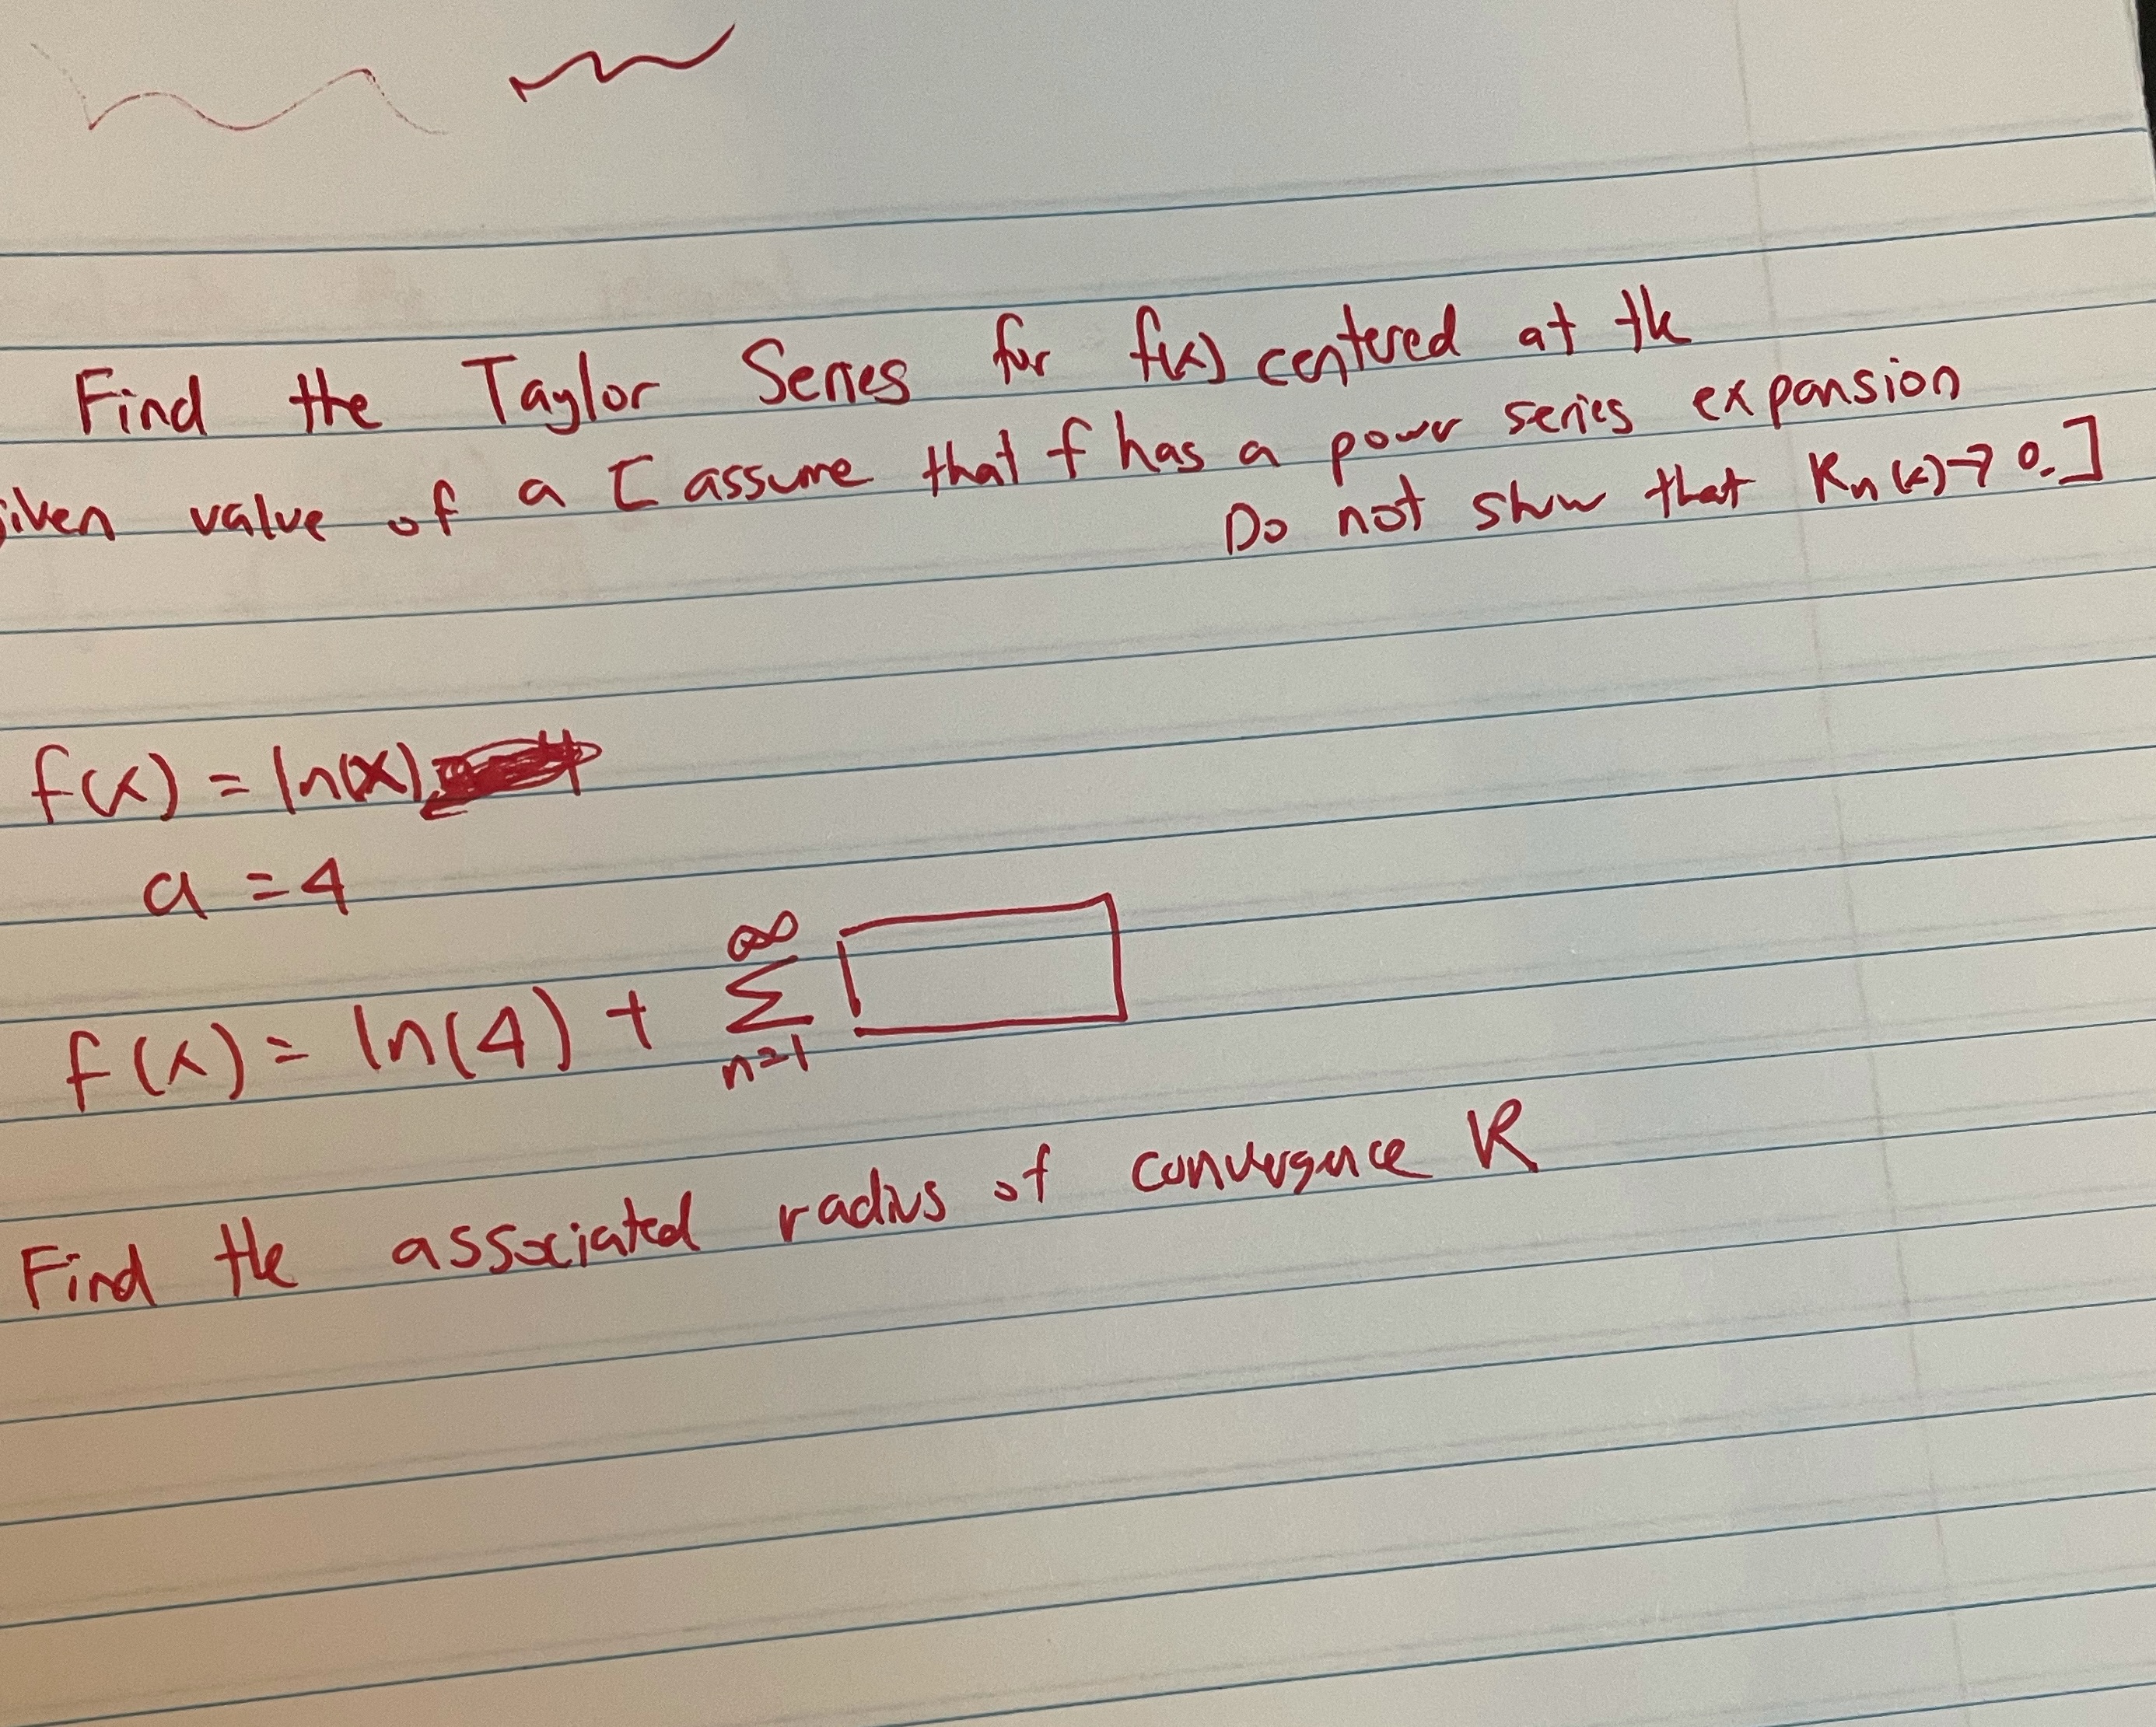 Find the Taylor Series for f(x) centered at the
given value of a [assume that f has a power series expansion
Do not show that Rn(x)→0.]
f(x) = ln(x)
a = 4
f(x) = ln(4) + ∑ n=1 ∞
Find the associated radius of convergence R